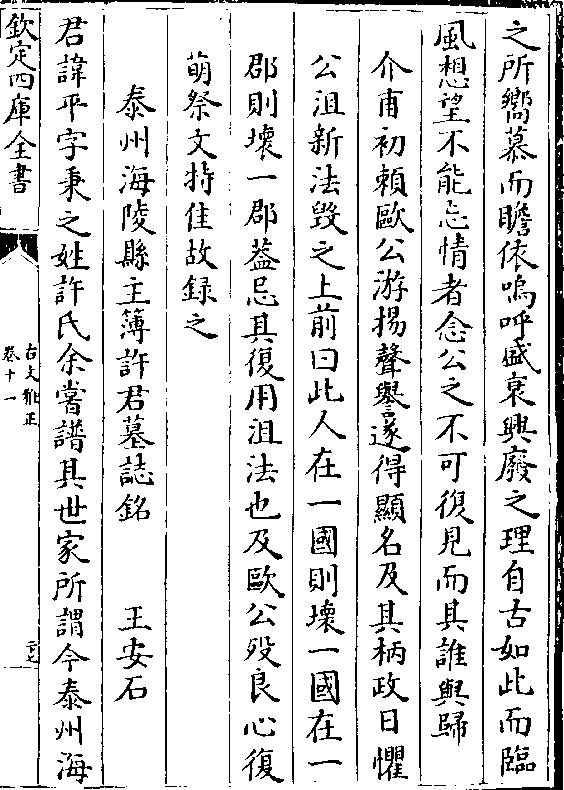 之所嚮慕而瞻依嗚呼盛衰興廢之理自古如此而臨
風想望不能忘情者念公之不可復見而其誰與歸
介甫初賴歐公游揚聲譽遂得顯名及其柄政日懼
公沮新法毁之上前曰此人在一國則壞一國在一
郡則壞一郡蓋忌其復用沮法也及歐公殁良心復
萌祭文特佳故録之
泰州海陵縣主簿許君墓誌銘 王安石
君諱平字秉之姓許氏余嘗譜其世家所謂今泰州海
欽定四庫全書
古文雅正
卷十一